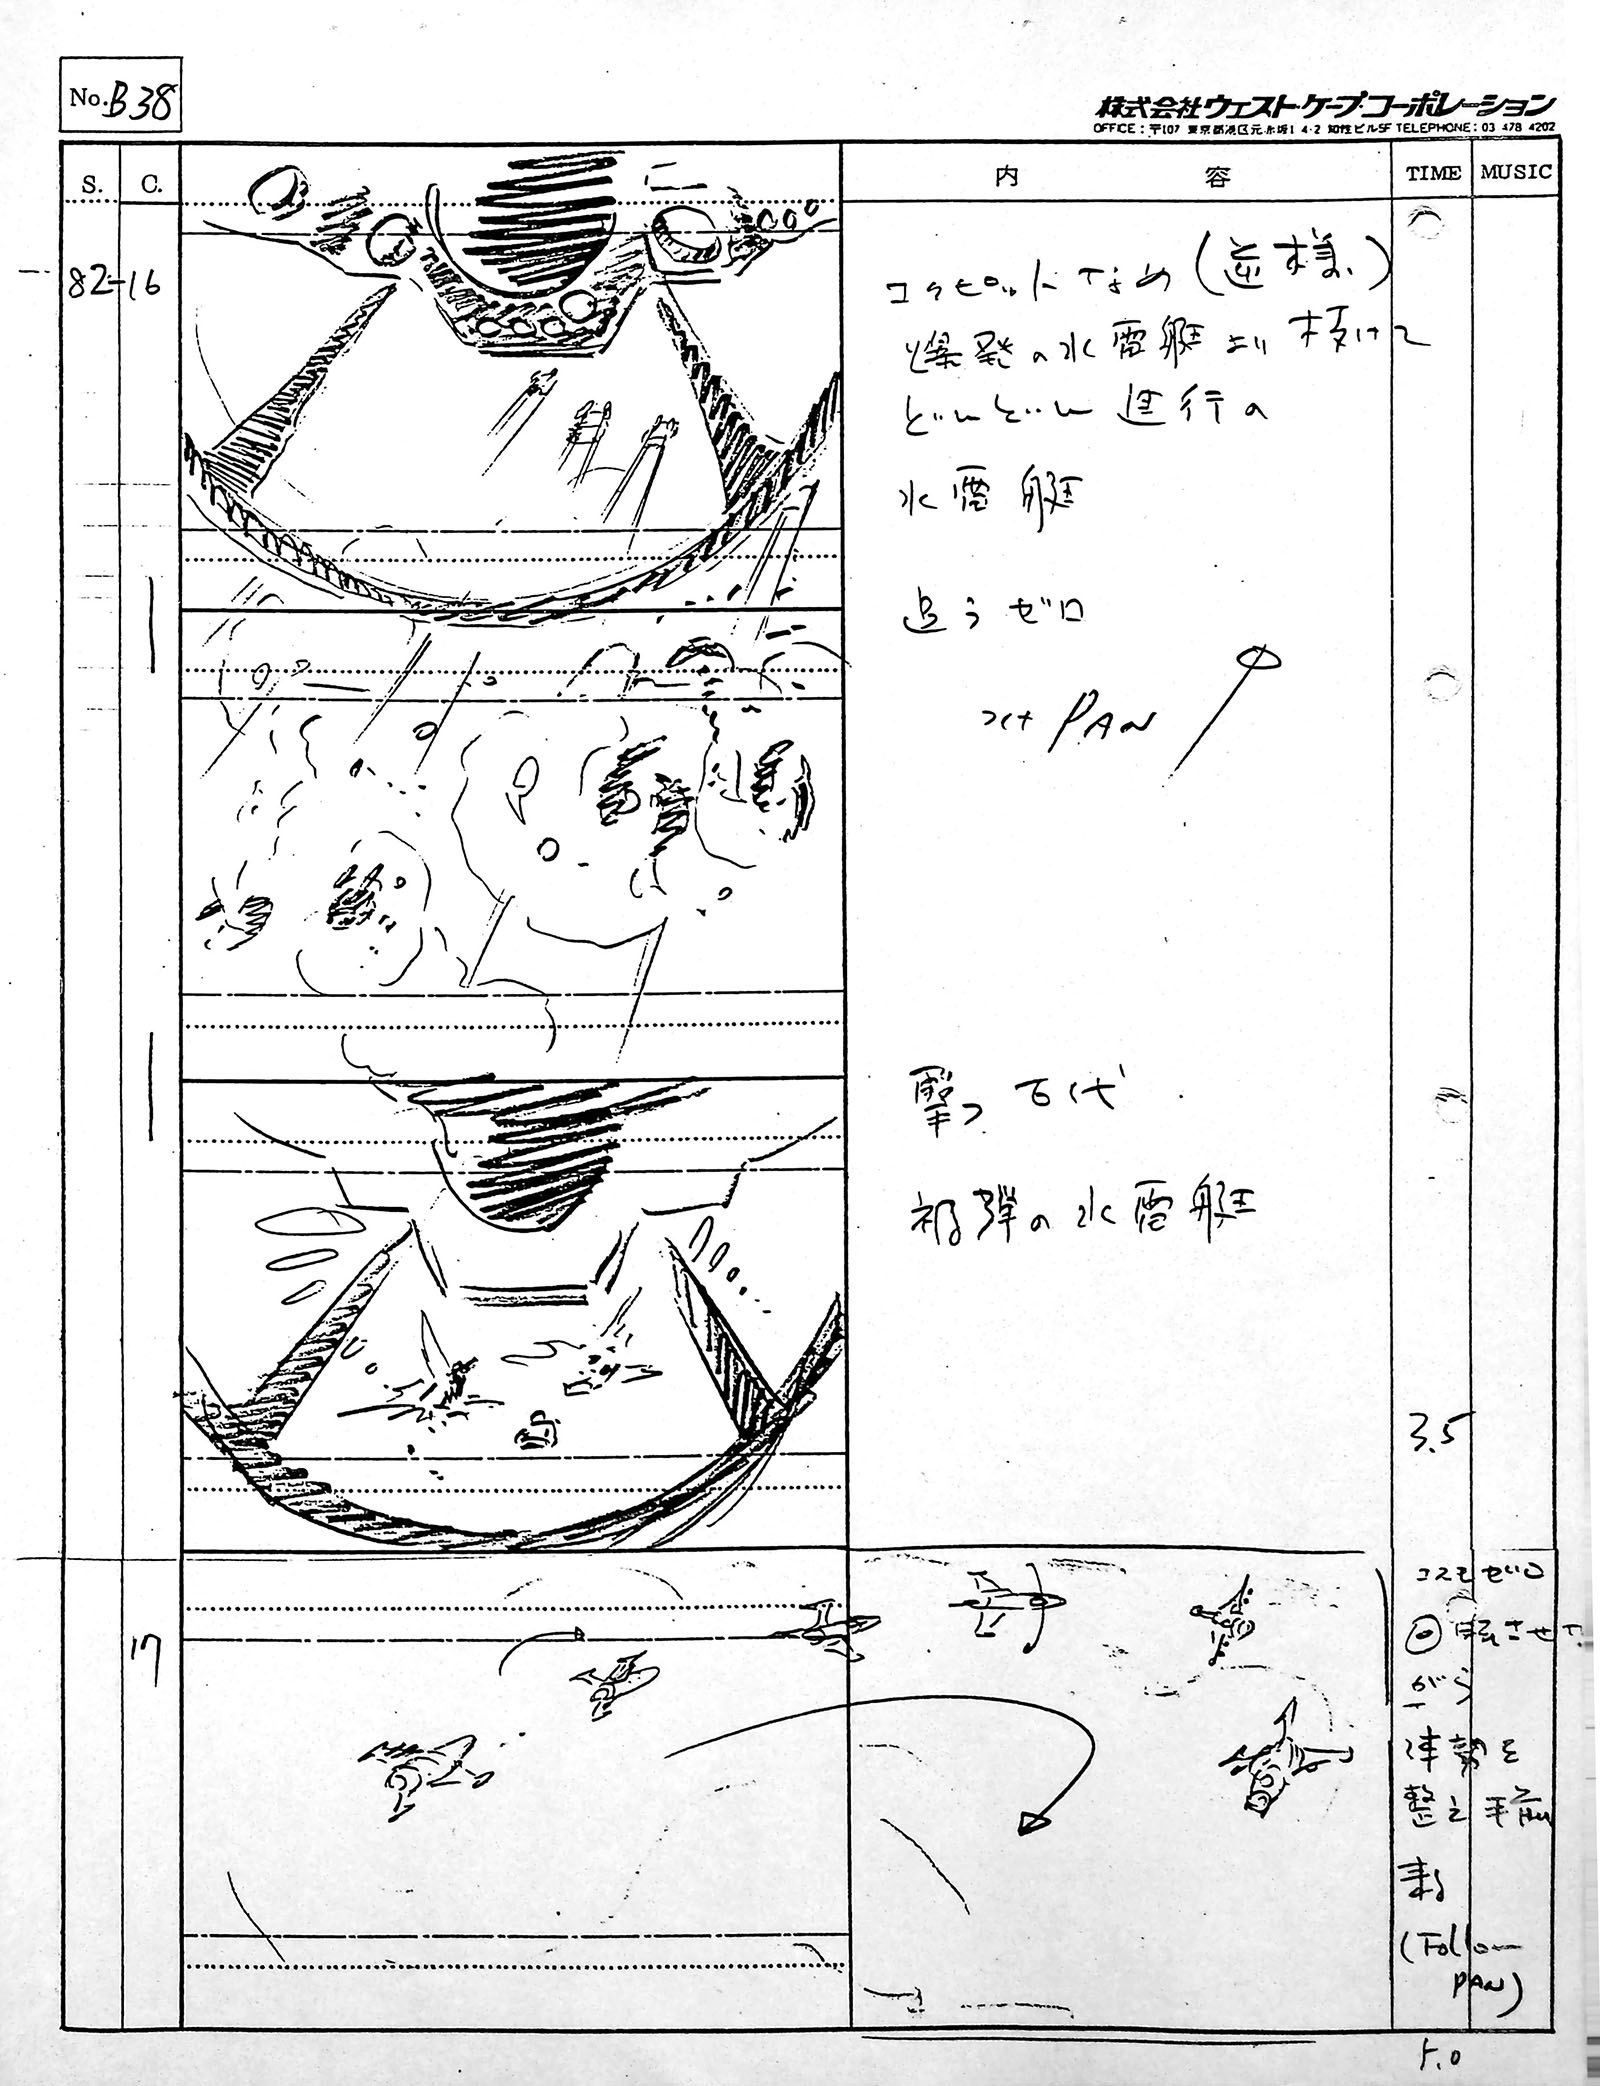 No.B38
株式会社ウェスト・ケープ・コーポレーション
OFFICE:〒107 東京都港区元赤坂1 4-2 知性ビル5F TELEPHONE:03 478 4202
S. C. 内容 TIME MUSIC
82-16
コクピットなめ(逆様)
爆発の水雷艇より抜けて
どんどん進行の
水雷艇
追うゼロ
PAN
撃つ古代
被弾の水雷艇
3.5
17
コスモゼロ
回転させな
がら
体勢を
整え
来る
(Follow
PAN)
5.0